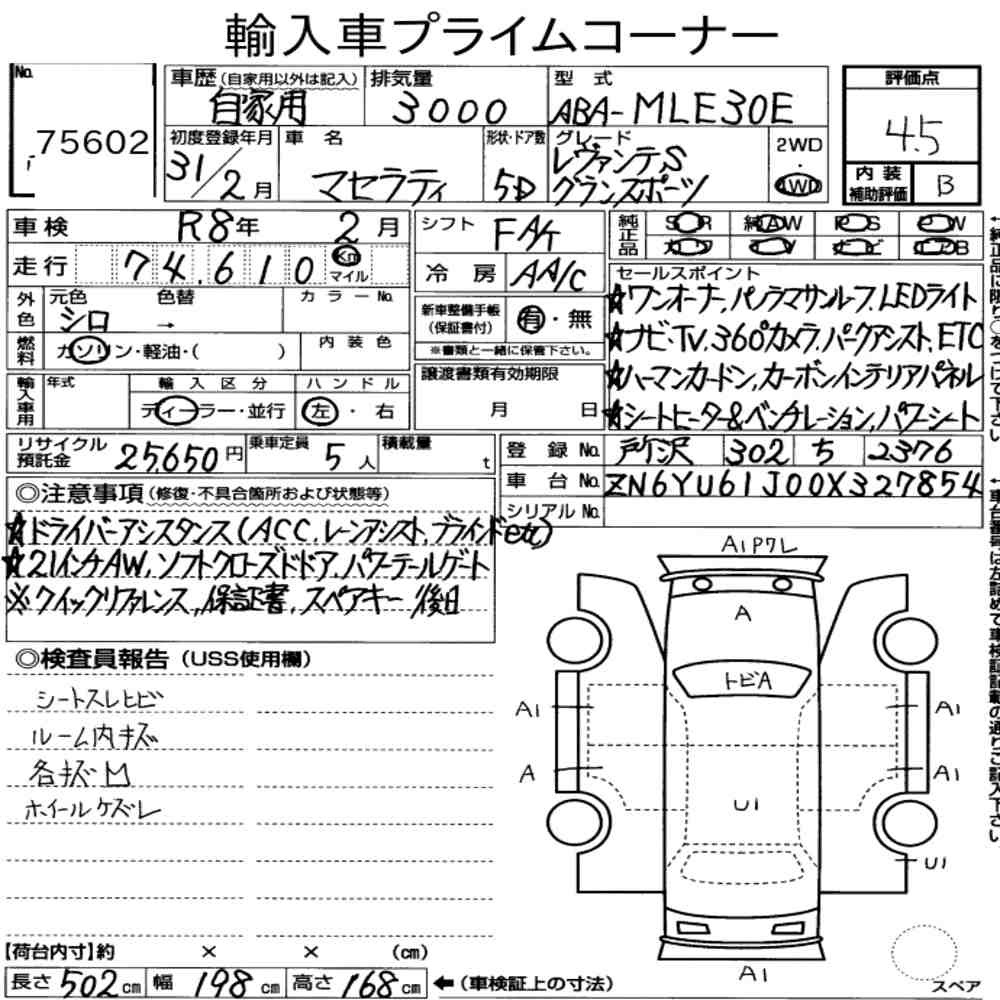 輸入車プライムコーナー
No. 75602
車歴(自家用以外は記入) 自家用
排気量 3000
型式 ABA-MLE30E
評価点 4.5
初度登録年月 31/2月
車名 マセラティ
形状・ドア数 5D
グレード レヴァンテS グランスポーツ
2WD・4WD
内装補助評価 B
車検 R8年 2月
シフト FA/T
純正品 S・R 純AW P・S P・W
カワ エアB
走行 74,610 Km マイル
冷房 AA/C
セールスポイント
☆ワンオーナー,パノラマサンルーフ,LEDライト
☆ナビ・TV,360°カメラ,パークアシスト,ETC
☆ハーマンカードン,カーボンインテリアパネル
☆シートヒーター&ベンチレーション,パワーシート
外色 元色 シロ 色替 → カラーNo.
新車整備手帳(保証書付) 有・無
※書類と一緒に保管下さい。
燃料 ガソリン・軽油・( ) 内装色
譲渡書類有効期限 月 日
輸入車用 年式 輸入区分 ディーラー・並行 ハンドル 左・右
リサイクル預託金 25,650円 乗車定員 5人 積載量 t
登録No. 所沢 302 ち 2376
車台No. ZN6YU61J00X327854
シリアルNo.
◎注意事項(修復・不具合箇所および状態等)
☆ドライバーアシスタンス(ACC,レーンアシスト,ブラインドetc)
☆21インチAW,ソフトクローズドドア,パワーテールゲート
※クイックリファレンス,保証書,スペアキー/後日
◎検査員報告(USS使用欄)
シートスレヒビ
ルーム内キズ
各キズ凹
ホイールケズレ
A1P7レ
A
トビA
A1 A1
A A1
U1
U1
A1
スペア
【荷台内寸】約 × × (cm)
長さ502cm 幅198cm 高さ168cm ←(車検証上の寸法)
←純正品に限り○をつけて下さい
←車台番号は左詰めで車検証記載の通りご記入下さい。